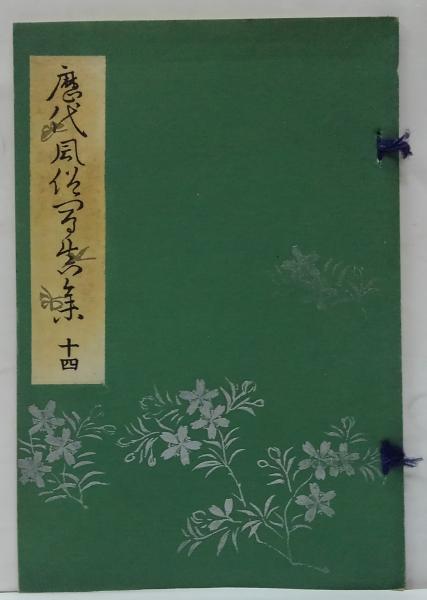 歴代風俗写真集 十四